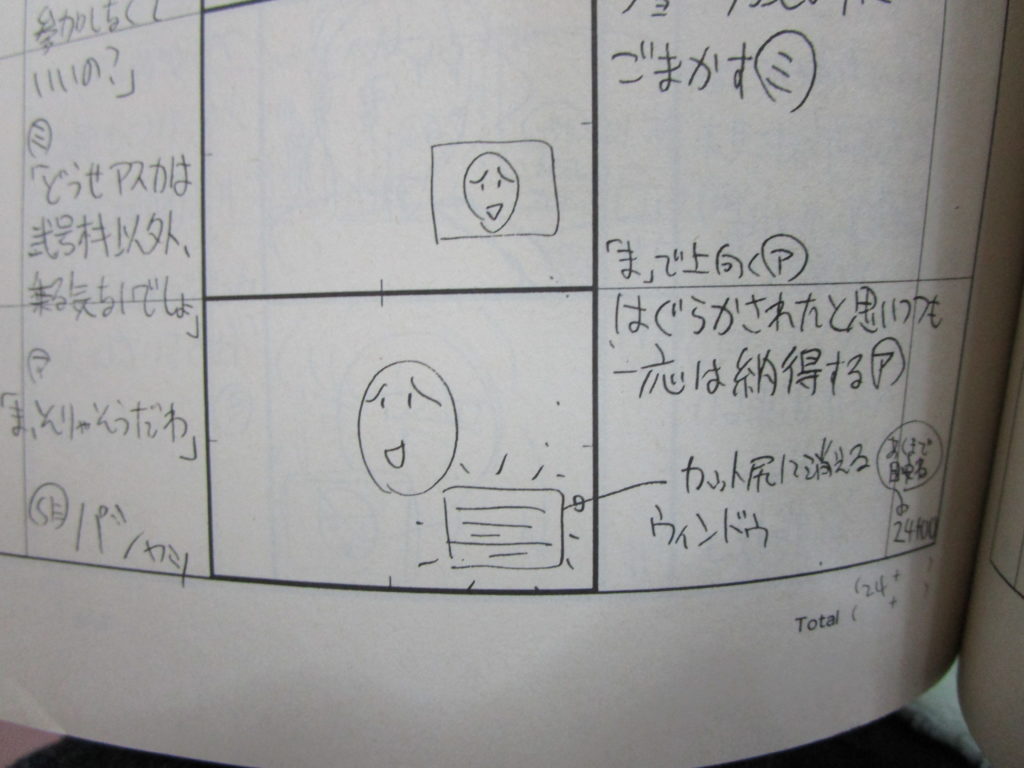 参加しなくて
いいの?」
ミ
「どうせアスカは
弐号機以外、
乗る気ないでしょ」
ア
「ま、そりゃそうだわ」
ごまかすミ
「ま」で上向くア
はぐらかされたと思いつつも
一応は納得するア
カット尻にて消える
ウィンドウ
Total (24 + )
( + )